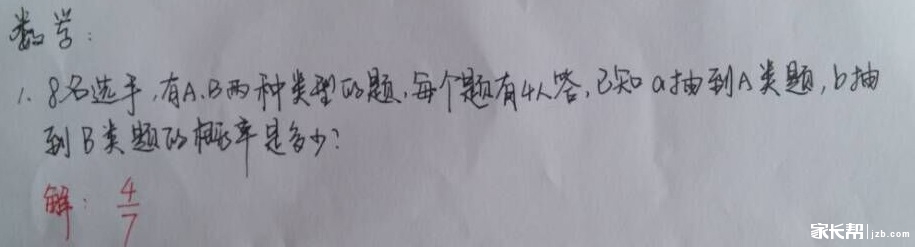 数学:
1. 8名选手,有A.B两种类型的题,每个题有4人答,已知a抽到A类题,b抽
到B类题的概率是多少?
解: 4/7
家长帮 jzb.com